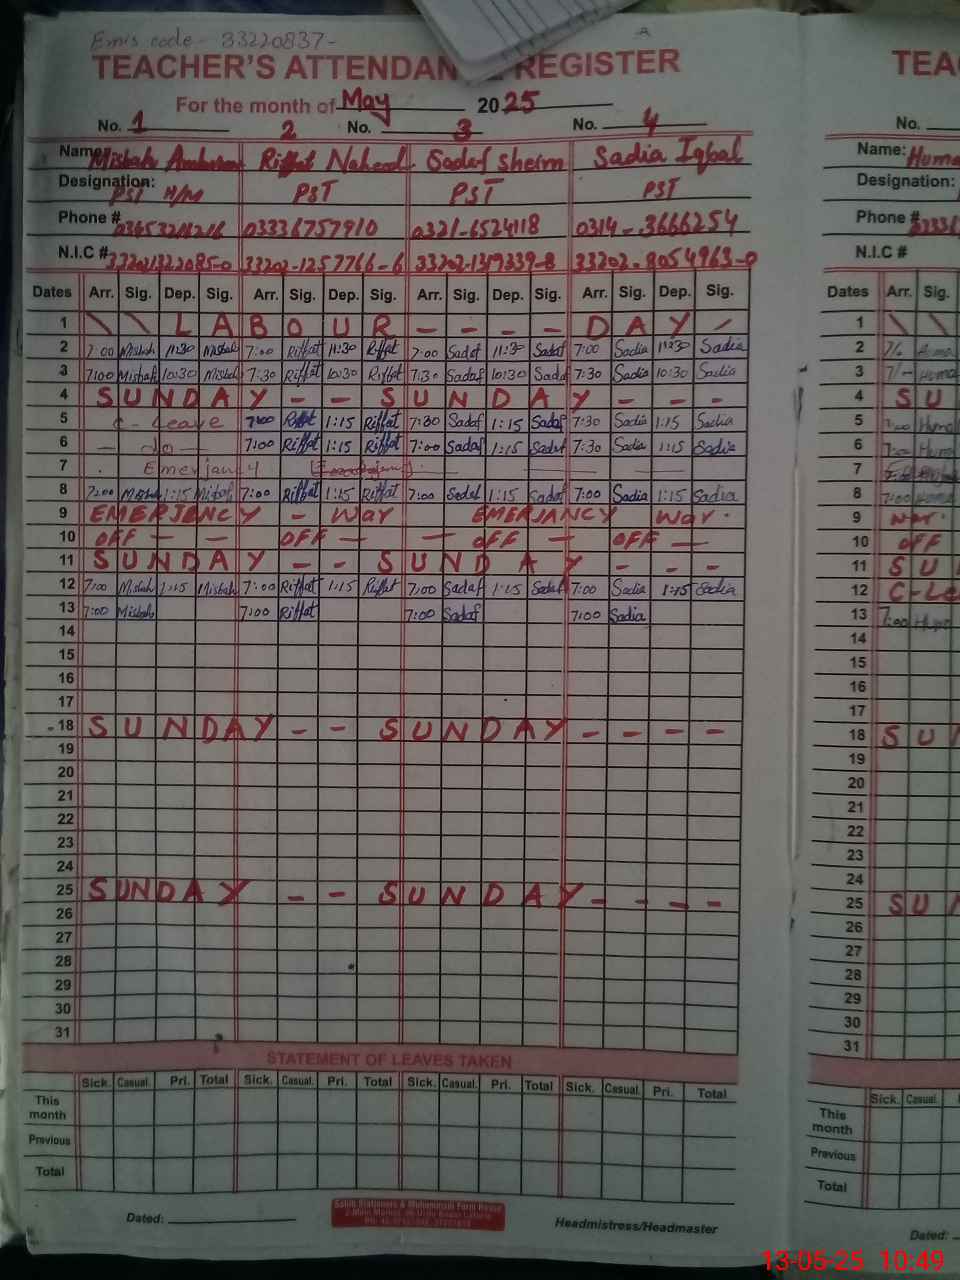 Emis code - 33220837-
TEACHER'S ATTENDAN E REGISTER TEA
For the month of May 2025
No. 1 2 No. 3 No. 4 No.
Name: Misbah Riffat Naheed Sadaf Sheim Sadia Iqbal Name: Huma
Designation: PST H/M PST PST PST Designation:
Phone # 03336757910 0321-6524118 0314-3666254 Phone #
N.I.C # 33202-1257766-6 33202-1319339-8 33202-8054963-0 N.I.C #
Dates Arr. Sig. Dep. Sig. Arr. Sig. Dep. Sig. Arr. Sig. Dep. Sig. Arr. Sig. Dep. Sig. Dates Arr. Sig.
1 \ \ L A B O U R - - - - D A Y - 1 \ \
2 7:00 Misbah 11:30 Misbah 7:00 Riffat 11:30 Riffat 7:00 Sadaf 11:30 Sadaf 7:00 Sadia 11:30 Sadia 2
3 7:00 Misbah 10:30 Misbah 7:30 Riffat 10:30 Riffat 7:30 Sadaf 10:30 Sadaf 7:30 Sadia 10:30 Sadia 3 7/- Huma
4 S U N D A Y - - S U N D A Y - - - 4 S U
5 C-Leave 7:00 Riffat 1:15 Riffat 7:30 Sadaf 1:15 Sadaf 7:30 Sadia 1:15 Sadia 5 7:00 Huma
6 - do - 7:00 Riffat 1:15 Riffat 7:00 Sadaf 1:15 Sadaf 7:30 Sadia 1:15 Sadia 6 7:00 Huma
7 Emerjancy 7
8 7:00 Misbah 1:15 Misbah 7:00 Riffat 1:15 Riffat 7:00 Sadaf 1:15 Sadaf 7:00 Sadia 1:15 Sadia 8 7:00 Huma
9 EMERJENCY - War EMERJANCY War. 9 War.
10 OFF - - OFF - - OFF - OFF - 10 OFF
11 S U N D A Y - - S U N D A Y - - - 11 S U
12 7:00 Misbah 1:15 Misbah 7:00 Riffat 1:15 Riffat 7:00 Sadaf 1:15 Sadaf 7:00 Sadia 1:15 Sadia 12 C-Le
13 7:00 Misbah 7:00 Riffat 7:00 Sadaf 7:00 Sadia 13 7:00 Huma
14 14
15 15
16 16
17 17
18 S U N D A Y - - S U N D A Y - - - - 18 S U N
19 19
20 20
21 21
22 22
23 23
24 24
25 S U N D A Y - - S U N D A Y - - - - 25 S U N
26 26
27 27
28 28
29 29
30 30
31 31
STATEMENT OF LEAVES TAKEN
Sick. Casual. Pri. Total Sick. Casual. Pri. Total Sick. Casual. Pri. Total Sick. Casual. Pri. Total Sick. Casual.
This month This month
Previous Previous
Total Total
Dated: Headmistress/Headmaster Dated:
13-05-25 10:49